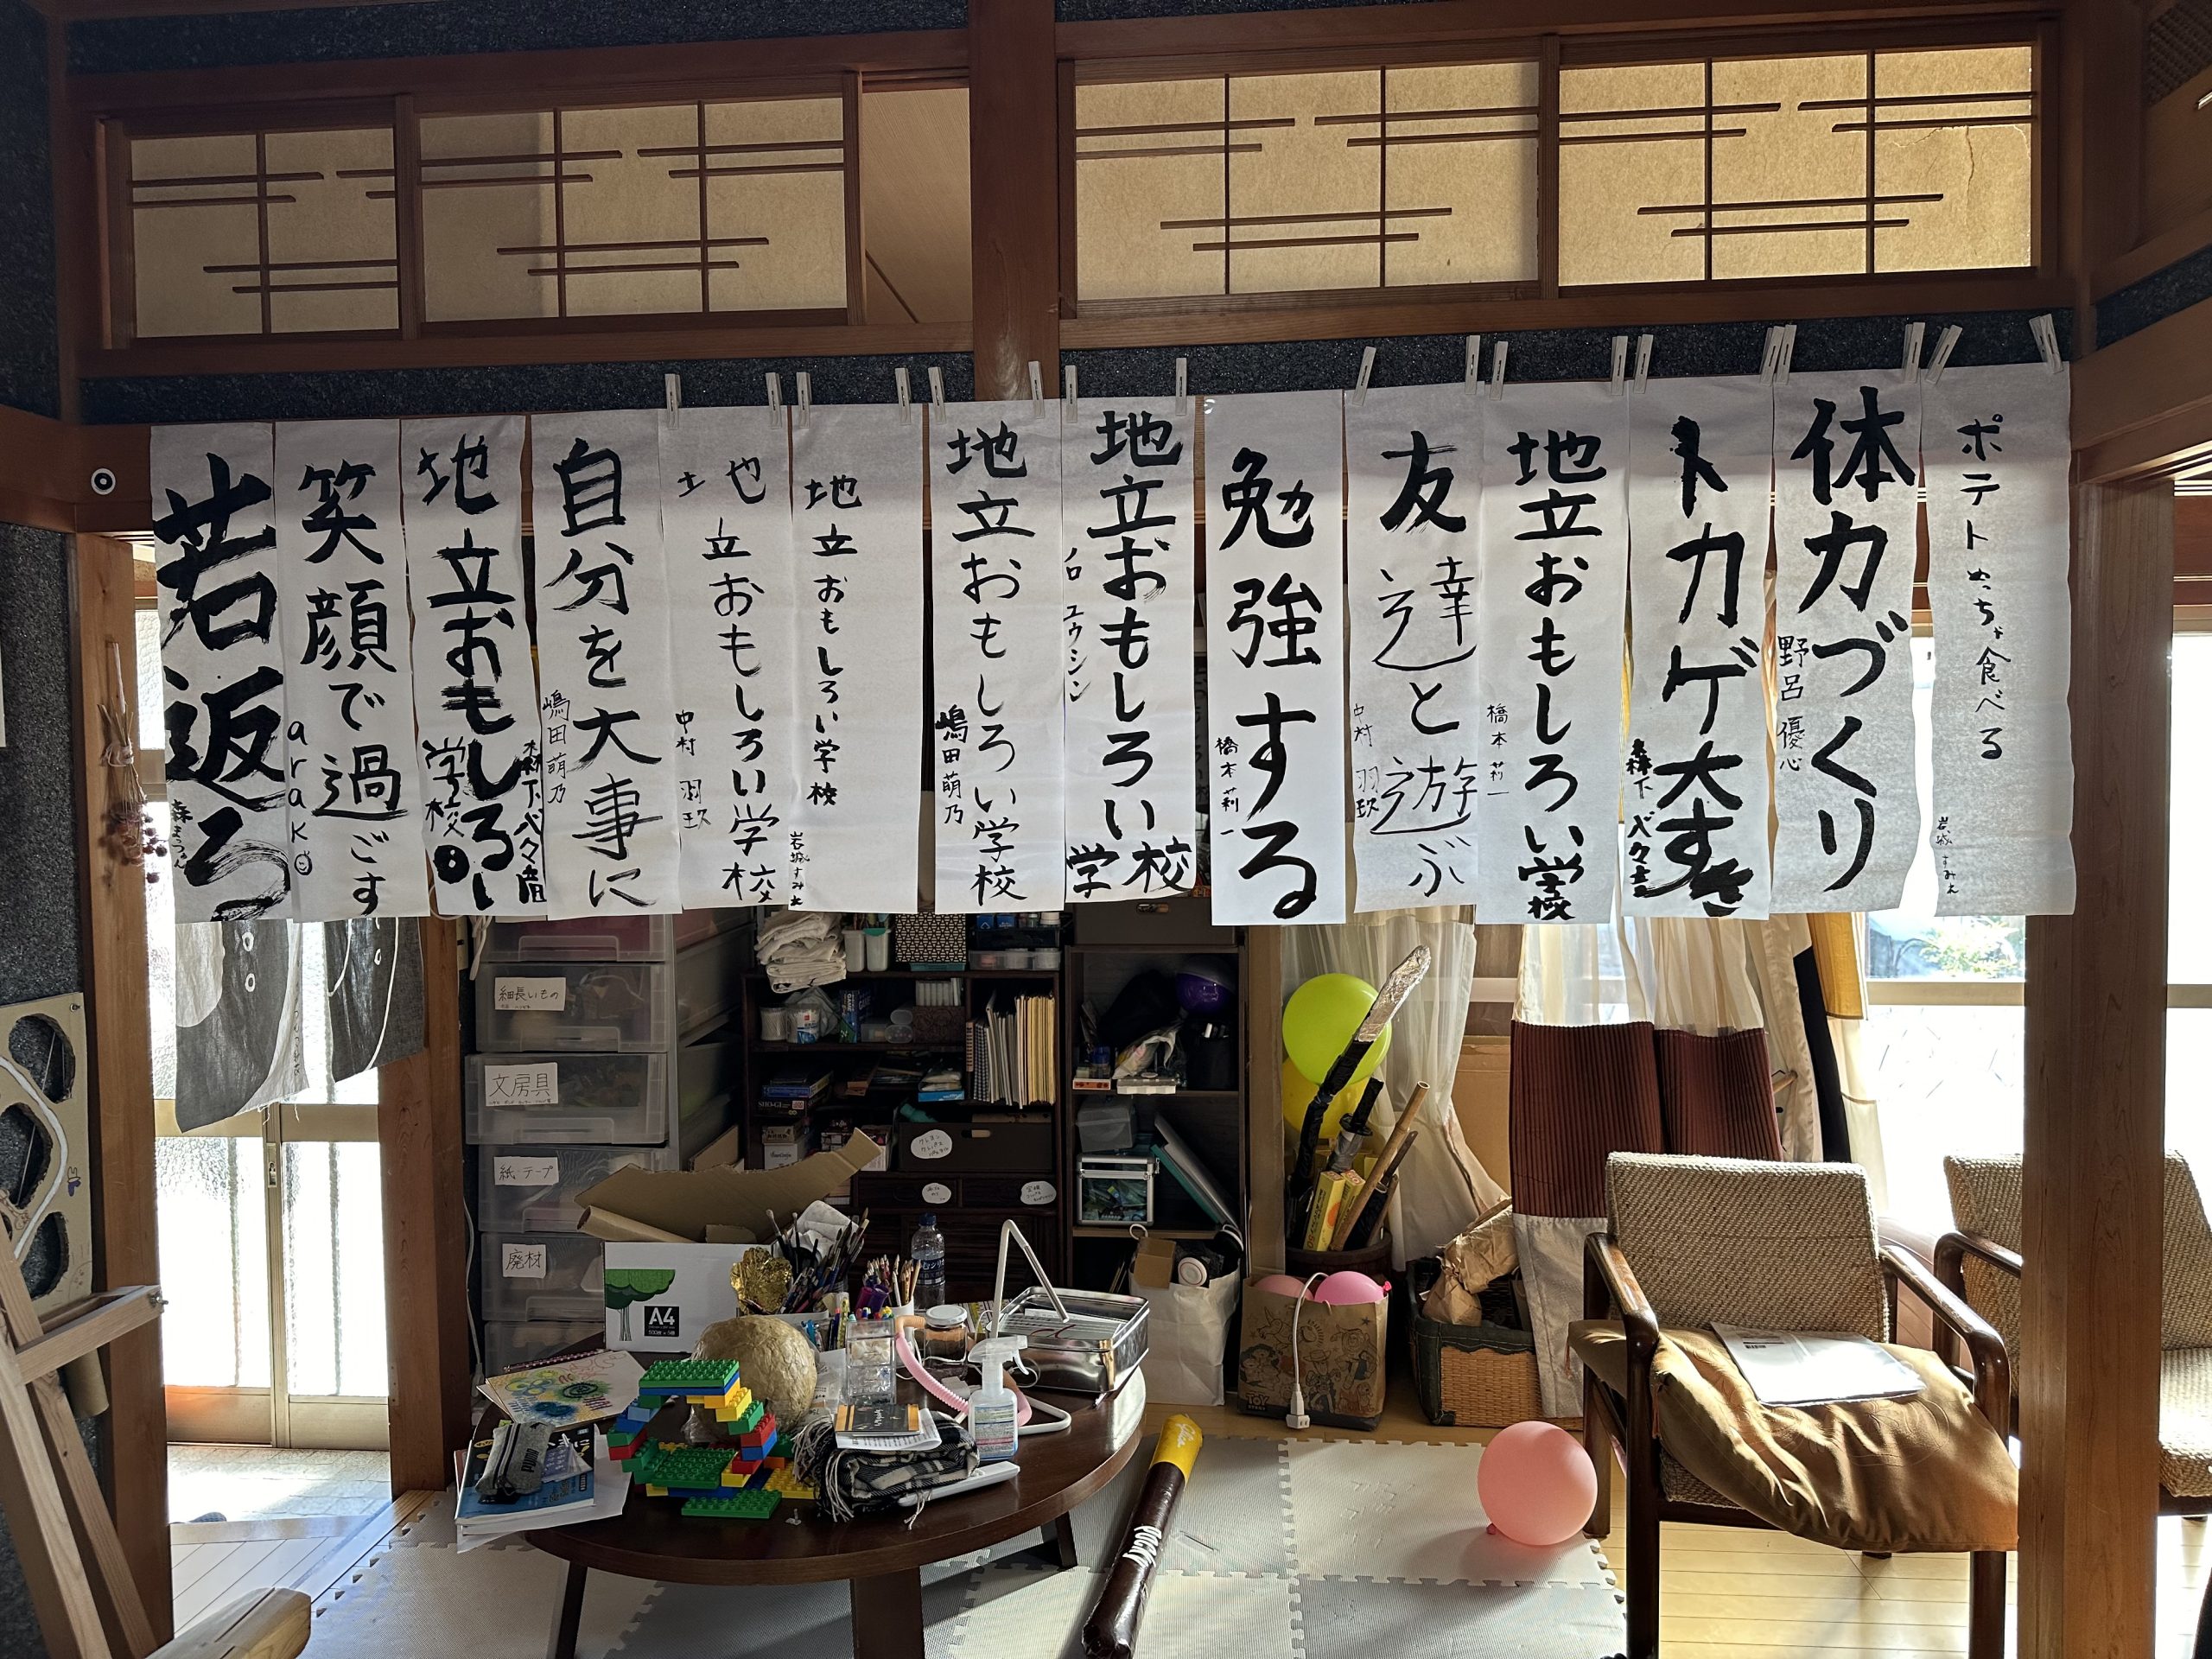 ポテトめっちゃ食べる
岩城 すみえ
体力づくり
野呂 優心
トカゲ大すき
森下
地立おもしろい学校
橋本莉一
友達と遊ぶ
中村 羽玖
勉強する
橋本莉一
地立おもしろい学校
ノロ ユウシン
地立おもしろい学校
嶋田萌乃
地立おもしろい学校
岩城すみえ
地立おもしろい学校
中村 羽玖
自分を大事に
嶋田萌乃
地立おもしろい学校
森下
笑顔で過ごす
arako
若返る
細長いもの
文房具
紙・テープ
廃材
A4
TOY
POCKY